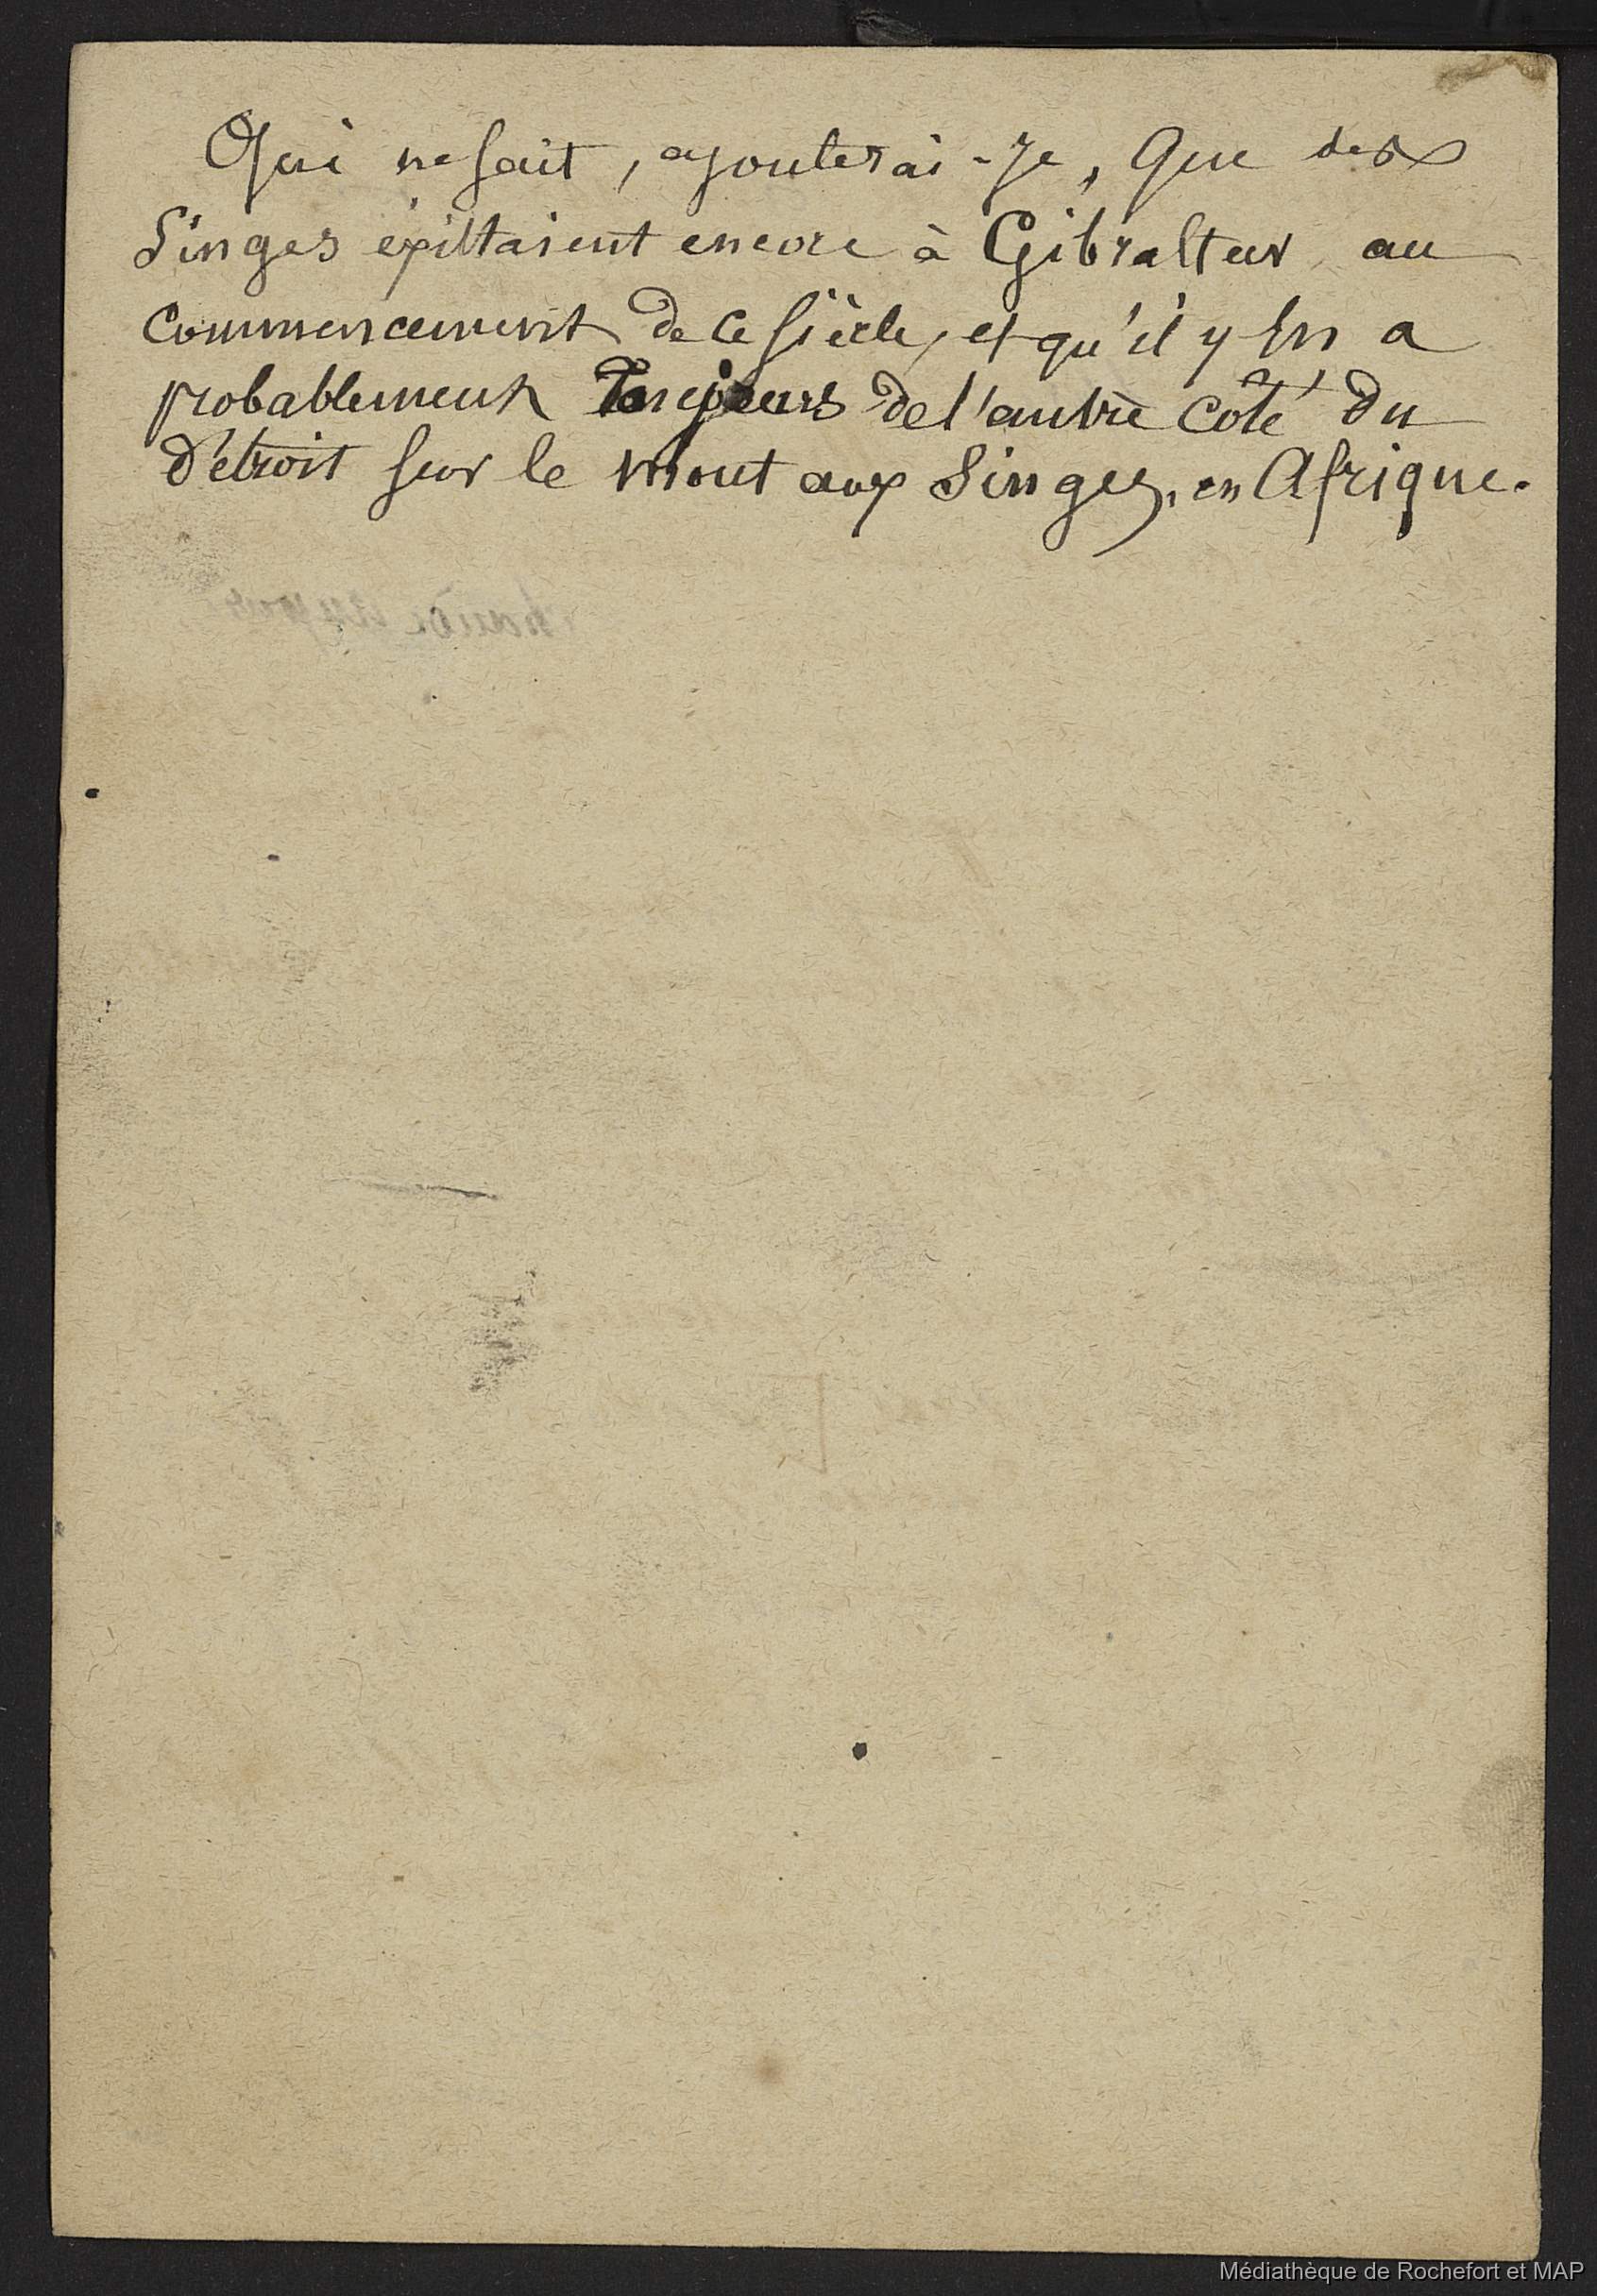 Qui ne sait, ajouterai-je, que des
Singes existaient encore à Gibraltar au
commencement de ce siècle, et qu'il y en a
probablement toujours de l'autre côté du
détroit sur le mont aux Singes, en Afrique.
Médiathèque de Rochefort et MAP